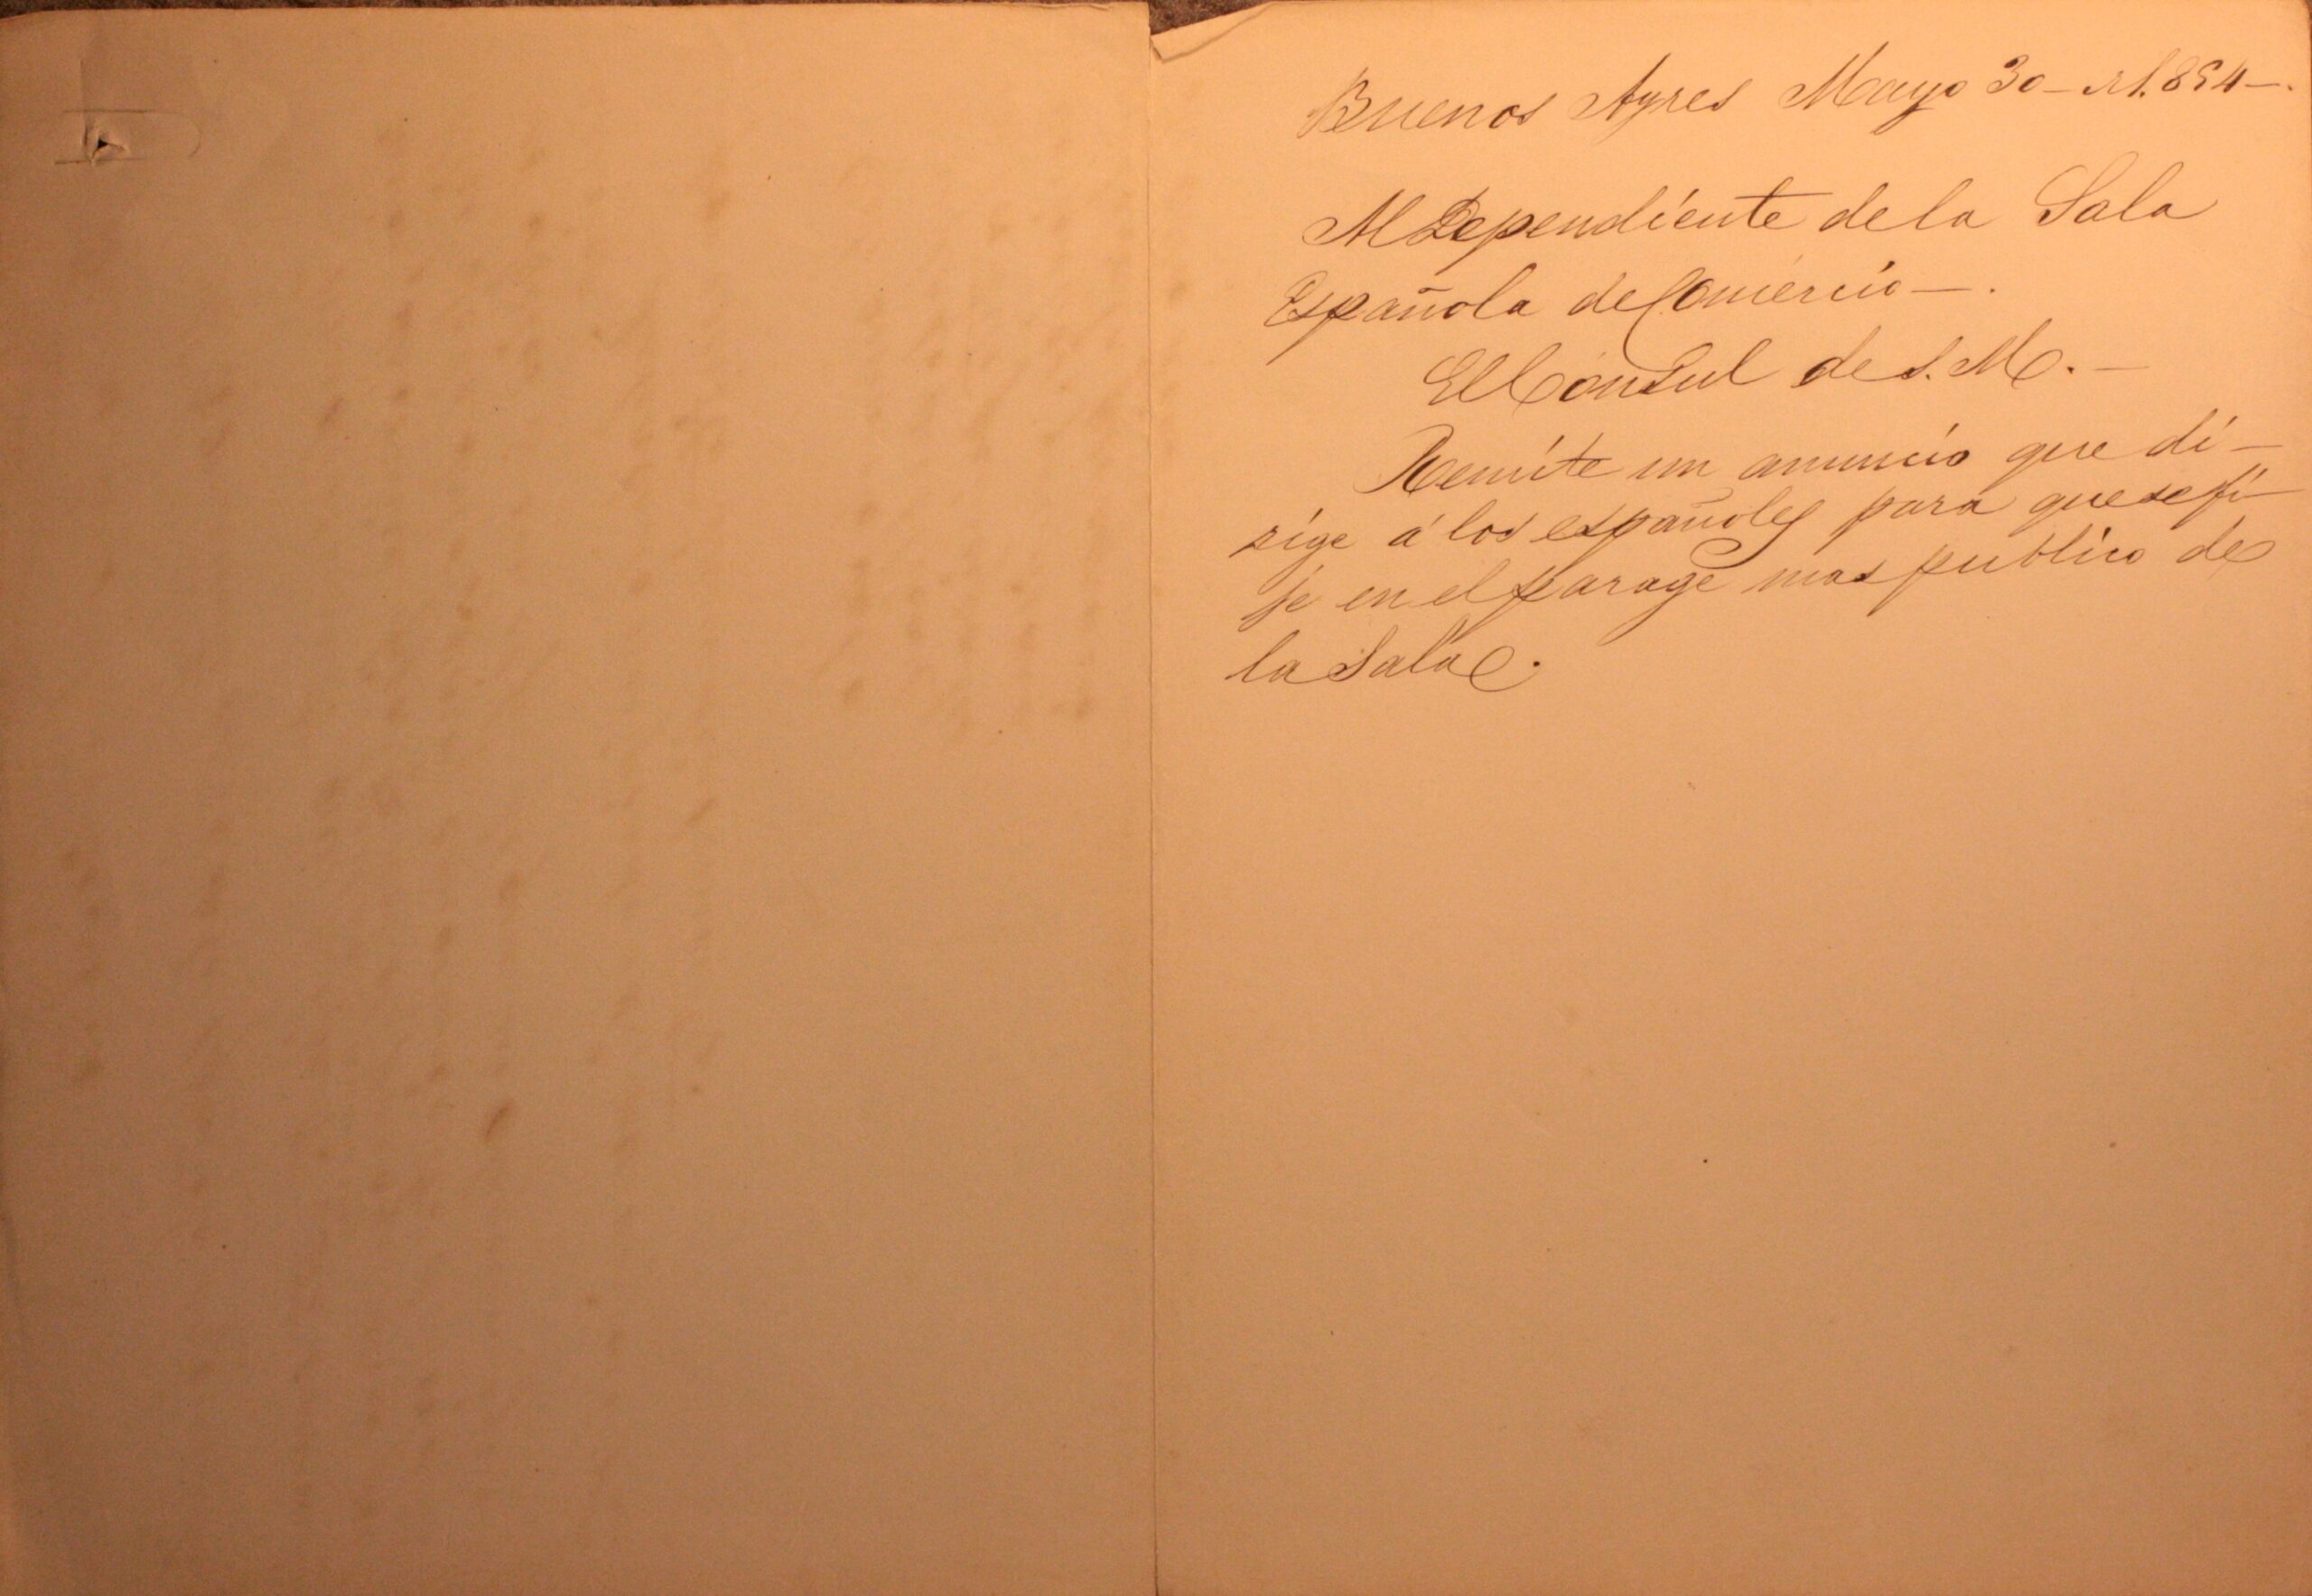 Buenos Ayres Mayo 30 – 1.854 –.
Al Dependiente de la Sala
Española de Comercio –.
El Cónsul de S. M. –
Remite un anuncio que di-
rige á los españoles para que se fi-
je en el parage mas publico de
la Sala.